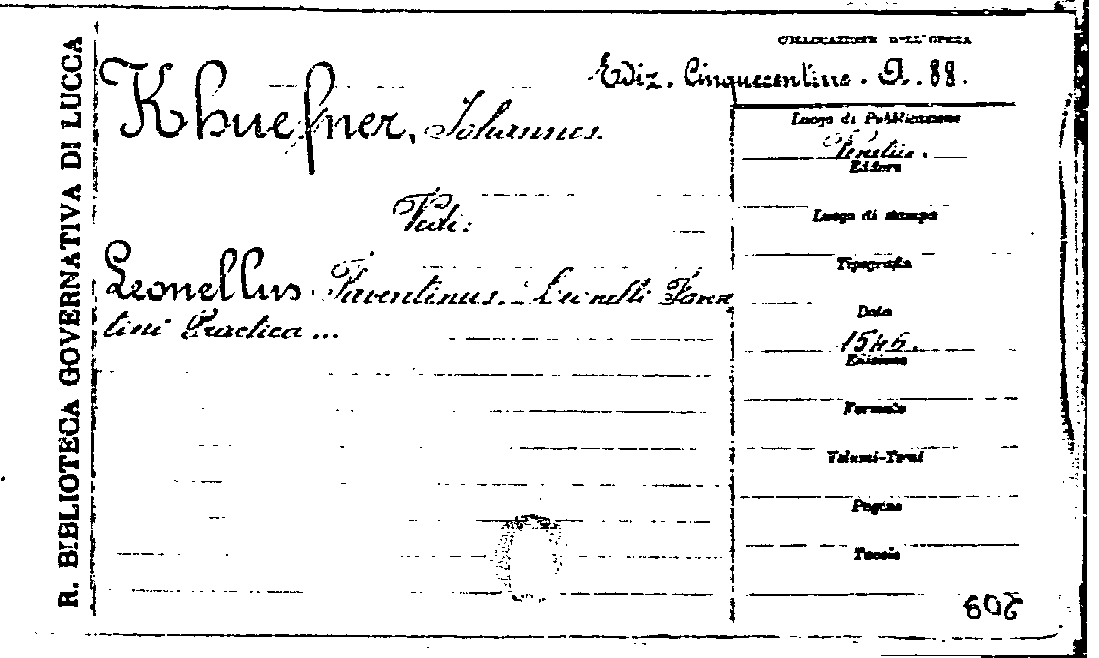 R. BIBLIOTECA GOVERNATIVA DI LUCCA
COLLOCAZIONE DELL'OPERA
Ediz. Cinquecentine. A. 88.
Khuefner, Johannes.
Vedi:
Leonellus Faventinus. Leonelli Faven
tini Practica ...
Luogo di Pubblicazione
Venetiis.
Editore
Luogo di stampa
Tipografia
Data
1545.
Edizione
Formato
Volumi-Tomi
Pagine
Tavole
209